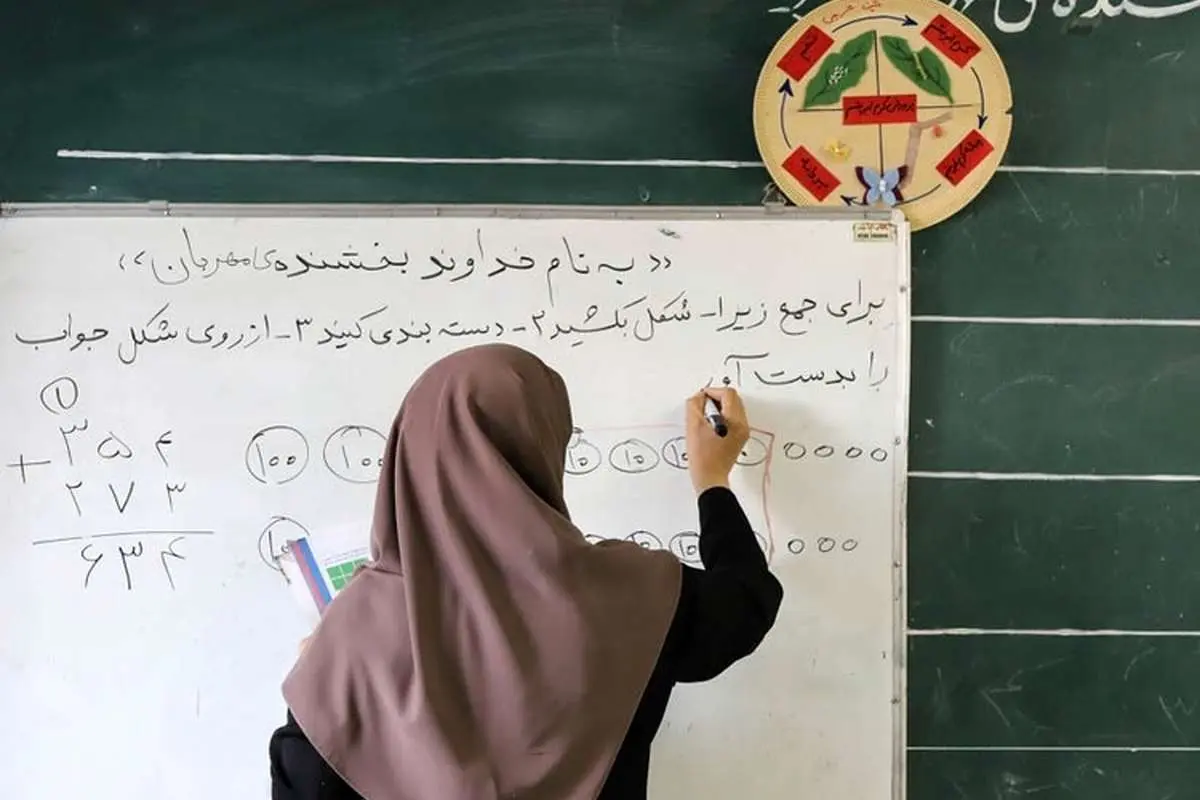 «به نام خداوند بخشنده‌ی مهربان»
برای جمع زیر ۱- شکل بکشید ۲- دسته بندی کنید ۳- از روی شکل جواب
را بدست آور
۱
۳ ۵ ۴
+ ۲ ۷ ۳
۶ ۳ ۴
۱۰۰ ۱۰۰ ۱۰ ۱۰ ۱۰ ۰ ۰ ۰ ۰
۱۰ ۰ ۰ ۰
تخم
کرم ابریشم
پروانه